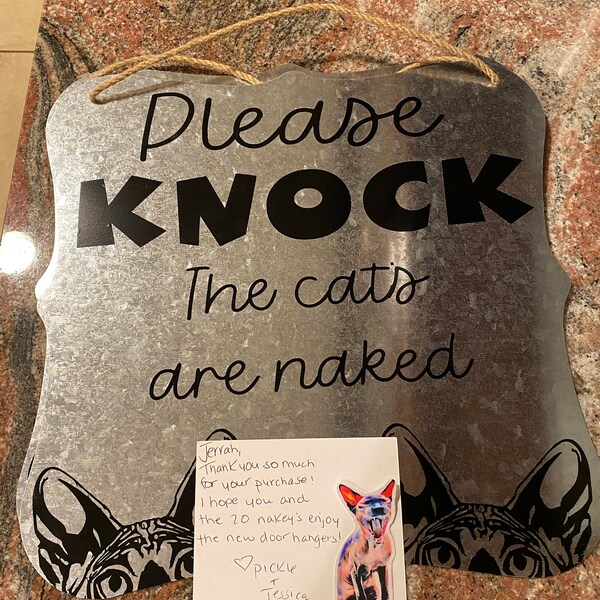 Please
KNOCK
The cats
are naked
Jerrah,
Thank you so much
for your purchase!
I hope you and
the 20 nakey's enjoy
the new door hangers!
♡ pickle
+
Jessica